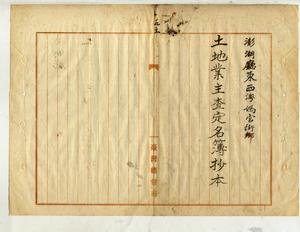 澎湖廳東西澳媽宮街鄉
土地業主查定名簿抄本
臺灣總督府